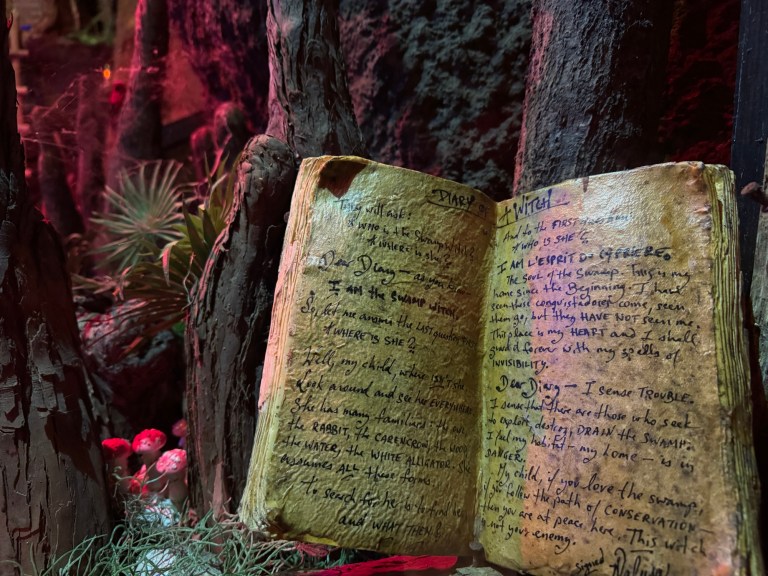 DIARY OF
A WITCH
They will ask:
"WHO is the Swamp Witch
"WHERE is she?"
Dear Diary — as you know
I AM the SWAMP WITCH.
So, let me answer the LAST question
"WHERE IS SHE?
Well, my child, where ISN'T she
Look around and see her EVERYWHERE
She has many familiars: the owl,
the RABBIT, the CARENCROW, the
the WATER, the WHITE ALLIGATOR. She
assumes ALL these forms.
To search for her is to find her
and WHAT THEN?
And to the FIRST
"WHO IS SHE"?
I AM L'ESPRIT D
The Soul of the Swamp. This is my
home since the Beginning. I have
seen those conquistadores come, seen
them go, but they HAVE NOT seen me.
This place is my HEART and I shall
guard it forever with my spells of
INVISIBILITY.
Dear Diary — I sense TROUBLE.
I sense that there are those who seek
to exploit, destroy, DRAIN the SWAMP.
I feel my habitat — my home — is in
DANGER.
My child, if you love the swamp,
if you follow the path of CONSERVATION
then you are at peace here. This witch
is not your enemy.
signed